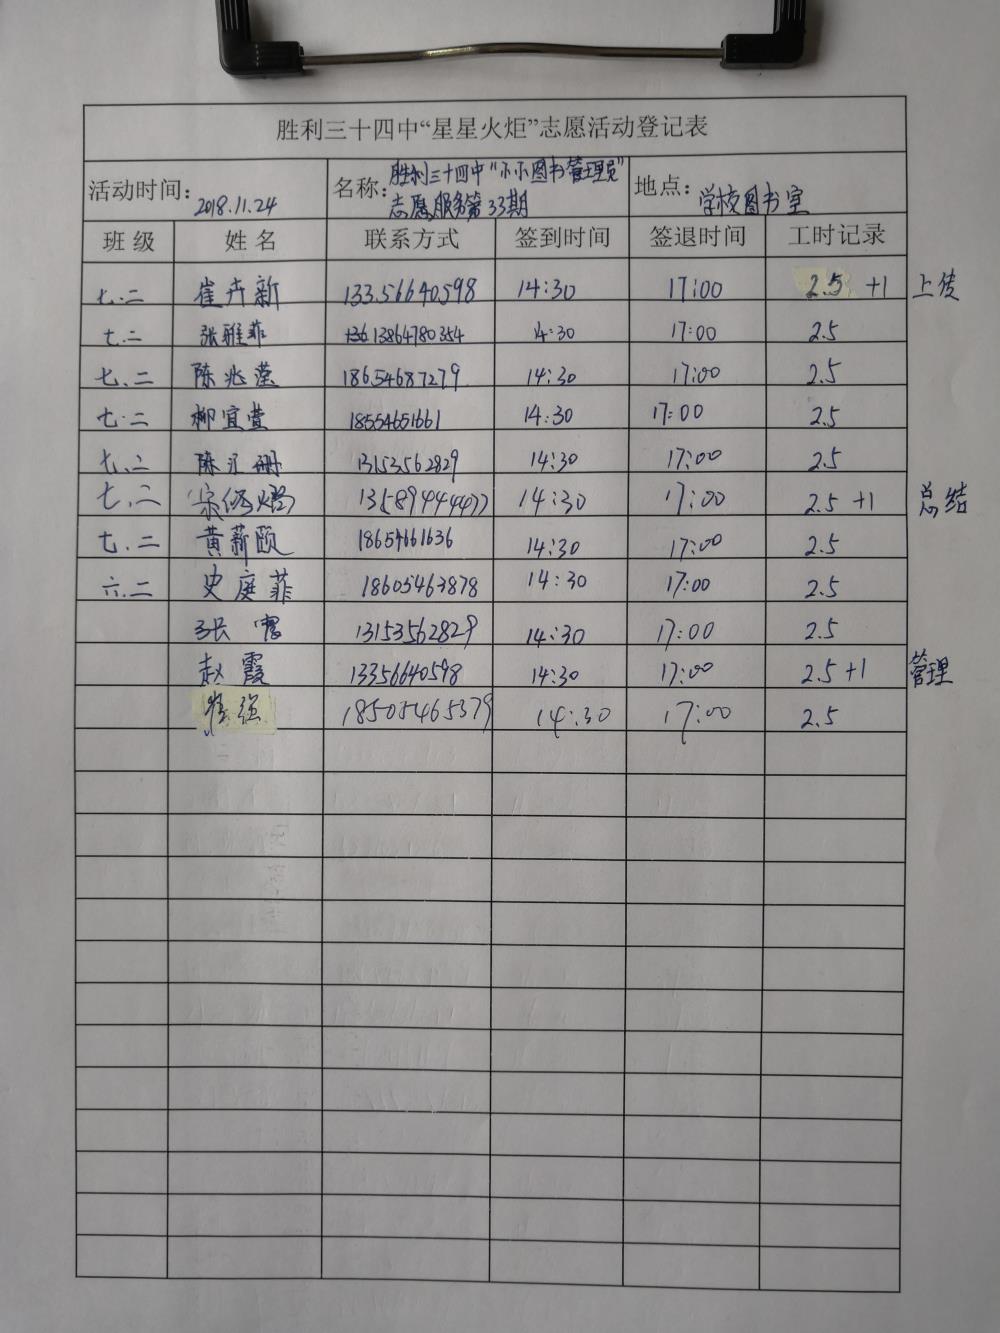 胜利三十四中“星星火炬”志愿活动登记表
活动时间: 2018.11.24 名称: 胜利三十四中“小小图书管理员”志愿服务第33期 地点: 学校图书室
班级 姓名 联系方式 签到时间 签退时间 工时记录
七.二 崔卉新 13356640598 14:30 17:00 2.5 +1 上传
七.二 张雅菲 13864780354 14:30 17:00 2.5
七.二 陈兆滢 18654687279 14:30 17:00 2.5
七.二 柳宜萱 18554651661 14:30 17:00 2.5
七.二 陈汇册 13153562829 14:30 17:00 2.5
七.二 13589444477 14:30 17:00 2.5 +1 总结
七.二 黄薪颐 18654661636 14:30 17:00 2.5
六.二 史庭菲 18605463878 14:30 17:00 2.5
张 13153562829 14:30 17:00 2.5
赵霞 13356640598 14:30 17:00 2.5 +1 管理
崔强 18505465379 14:30 17:00 2.5